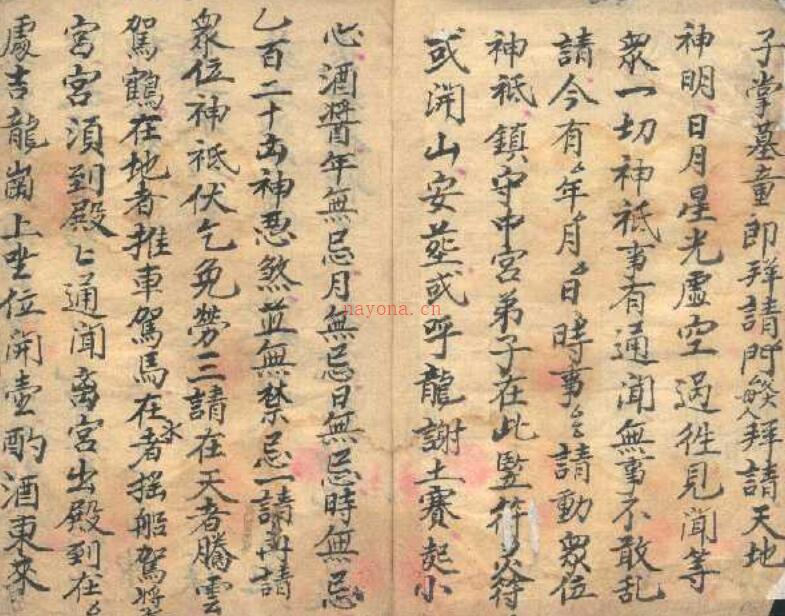 子掌墓童即拜請門人拜請天地
神明日月星光虛空過往見聞等
衆一切神祇事有通聞無事不敢亂
請今有年月日時事請動衆位
神祇鎮守中宮弟子在此監符炎符
或開山安葬或呼龍謝土賽起小
心酒醬年無忌月無忌日無忌時無忌
乙百二十四神惡煞並無禁忌一請再請
衆位神祇伏乞免勞三請在天者騰雲
駕鶴在地者推車駕馬在水者摇船駕
宮宮須到殿上通聞离宮出殿到在
處吉龍崗上坐位開壺酌酒東來
nayona.cn